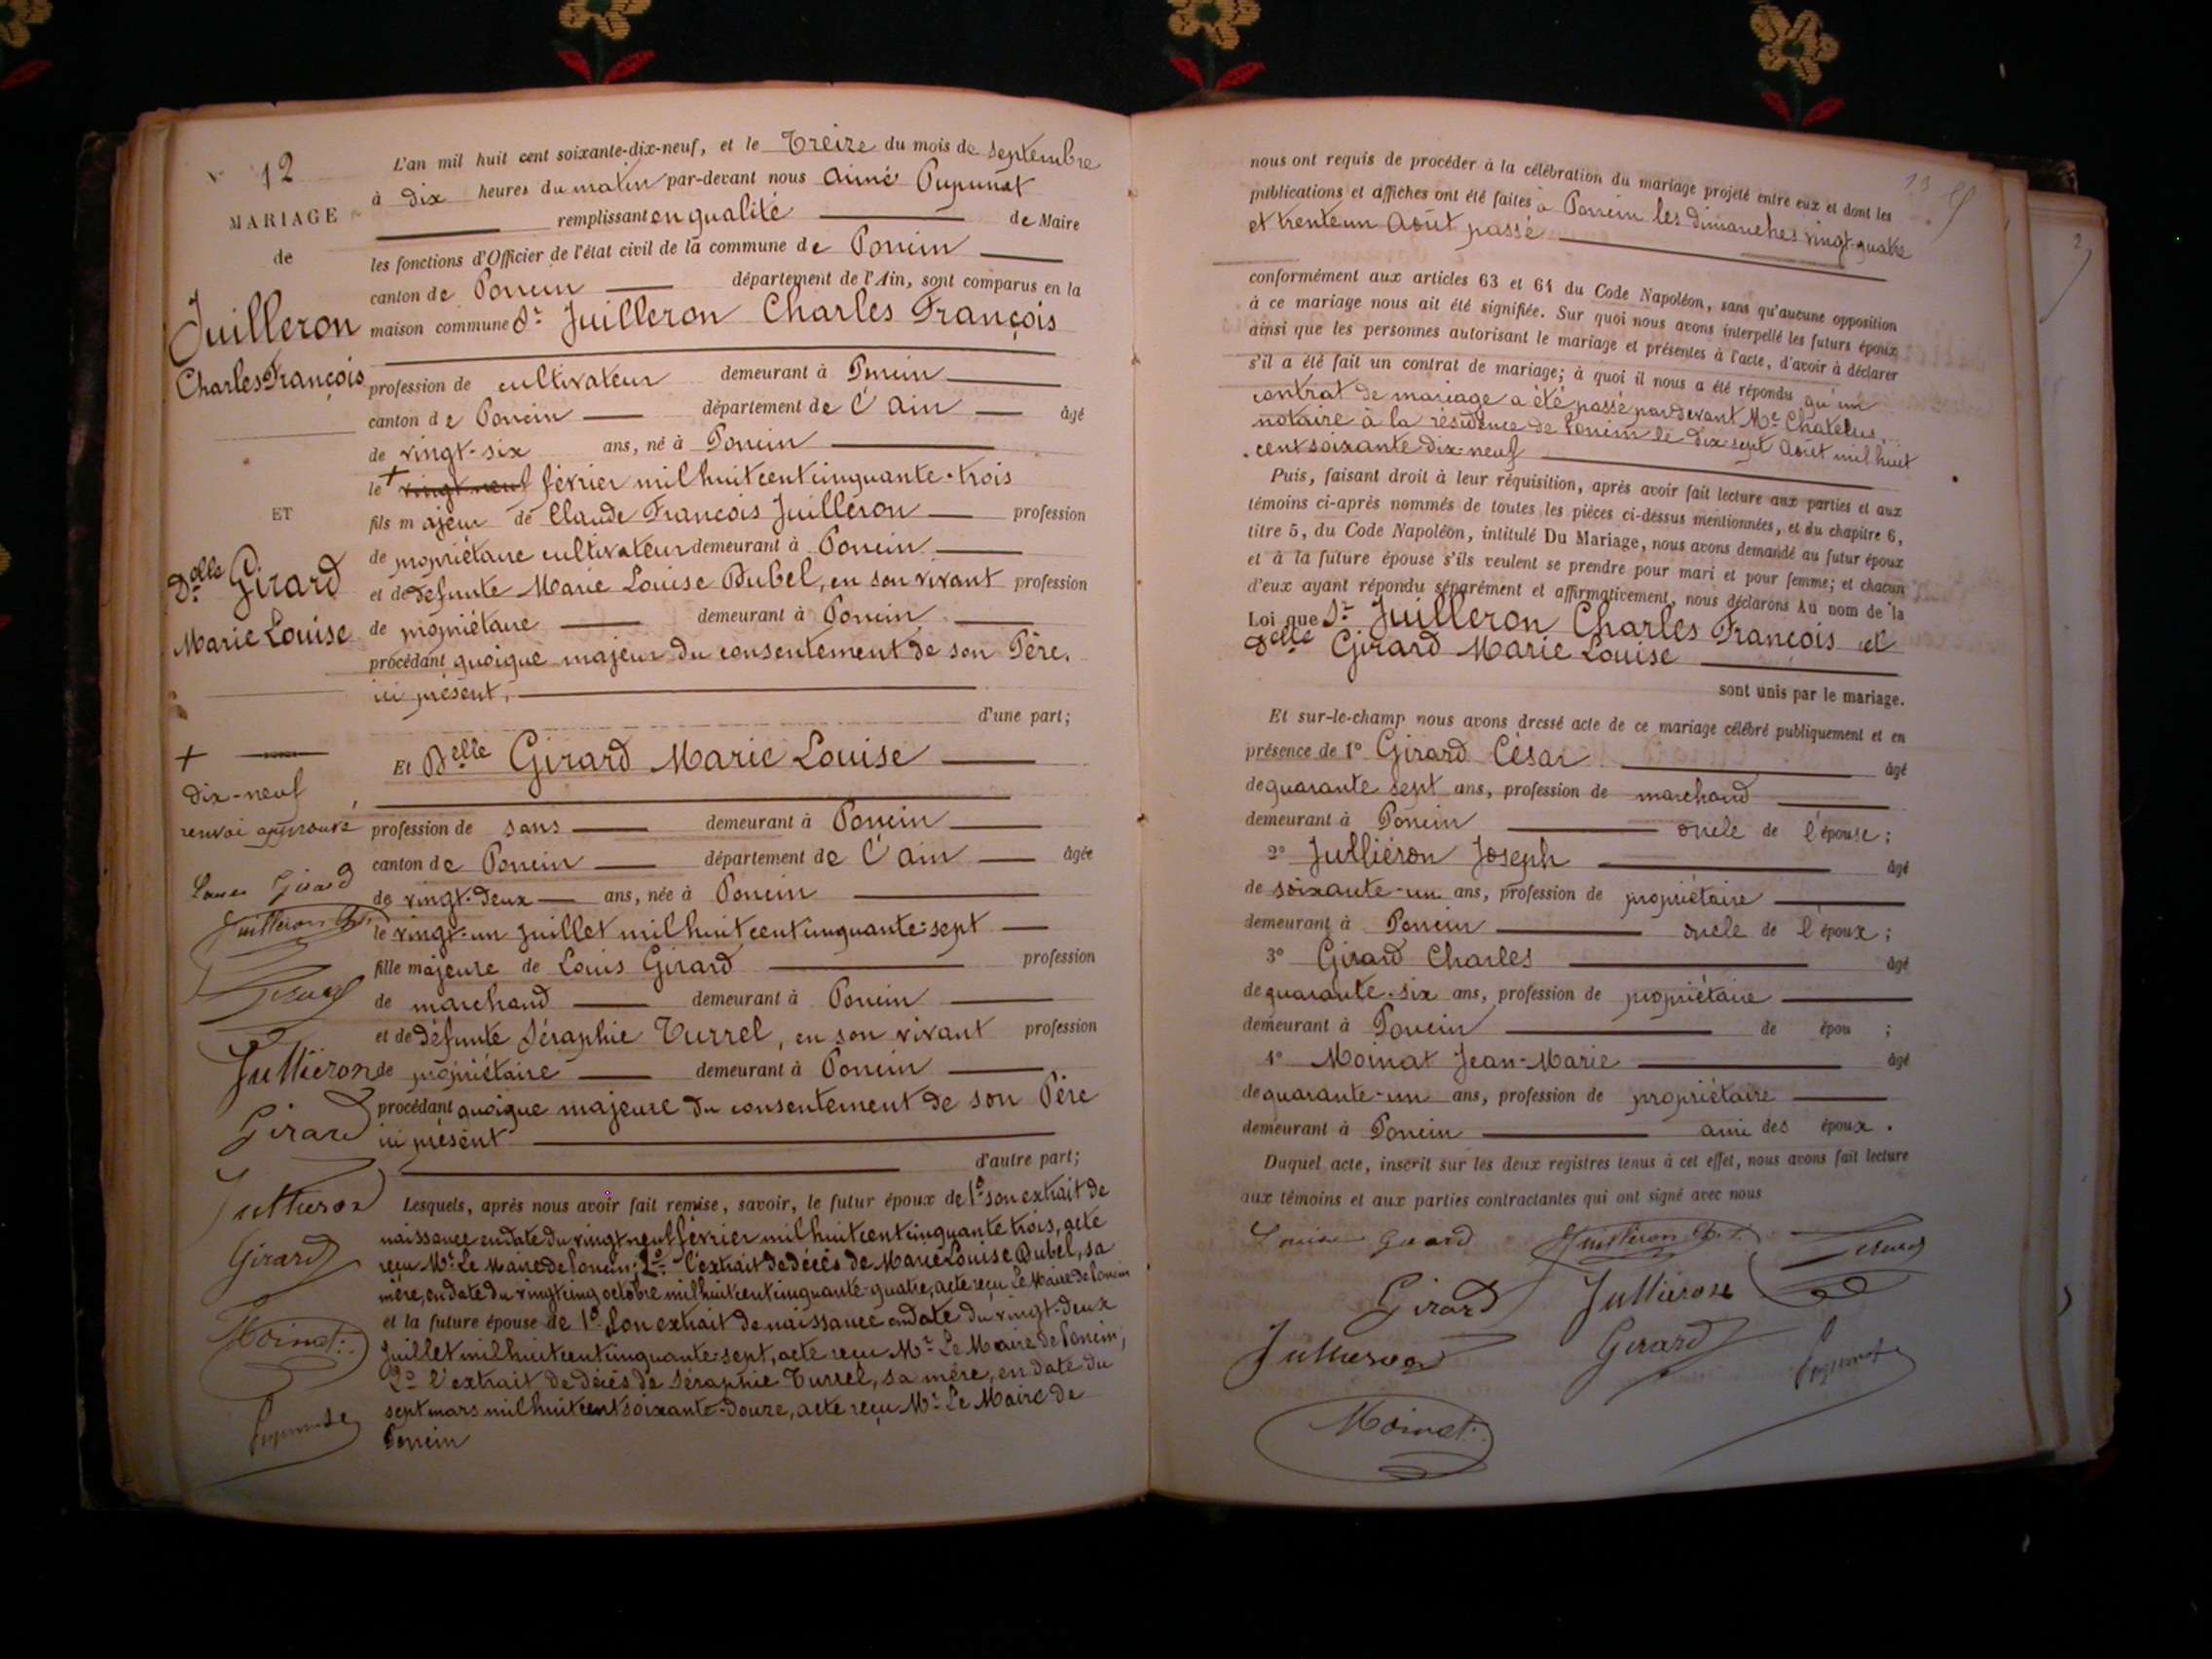 N° 12
MARIAGE
de
Juilleron
Charles François
ET
Delle Girard
Marie Louise
+
dix-neuf
renvoi approuvé
Louise Girard
Juilleron
Jullieron
Girard
Jullieron
Girard
Moinat
L'an mil huit cent soixante-dix-neuf, et le Treize du mois de Septembre
à dix heures du matin par-devant nous Aimé Pupunat
remplissant en qualité de Maire
les fonctions d'Officier de l'état civil de la commune de Poncin
canton de Poncin département de l'Ain, sont comparus en la
maison commune Sr Juilleron Charles François
profession de cultivateur demeurant à Poncin
canton de Poncin département de l'Ain âgé
de vingt-six ans, né à Poncin
le + vingt neuf février mil huit cent cinquante-trois
fils majeur de Claude François Juilleron profession
de propriétaire cultivateur demeurant à Poncin
et de défunte Marie Louise Dubel, en son vivant profession
de propriétaire demeurant à Poncin
procédant quoique majeur du consentement de son Père.
ici présent,
d'une part;
Et Delle Girard Marie Louise
profession de sans demeurant à Poncin
canton de Poncin département de l'Ain âgée
de vingt-deux ans, née à Poncin
le vingt-un Juillet mil huit cent cinquante-sept
fille majeure de Louis Girard profession
de marchand demeurant à Poncin
et de défunte Séraphie Turrel, en son vivant profession
de propriétaire demeurant à Poncin
procédant quoique majeure du consentement de son Père
ici présent
d'autre part;
Lesquels, après nous avoir fait remise, savoir, le futur époux de 1° son extrait de
naissance en date du vingt neuf février mil huit cent cinquante trois, acte
reçu Mr Le Maire de Poncin; 2° l'extrait de décés de Marie Louise Dubel, sa
mère, en date du vingt cinq octobre mil huit cent cinquante-quatre, acte reçu Le Maire de Poncin
et la future épouse de 1° Son extrait de naissance en date du vingt-deux
Juillet mil huit cent cinquante-sept, acte reçu Mr Le Maire de Poncin;
2° l'extrait de décés de Séraphie Turrel, sa mère, en date du
sept mars mil huit cent soixante-douze, acte reçu Mr Le Maire de
Poncin
13
nous ont requis de procéder à la célébration du mariage projeté entre eux et dont les
publications et affiches ont été faites à Poncin les dimanches vingt-quatre
et trente un Août passé
conformément aux articles 63 et 64 du Code Napoléon, sans qu'aucune opposition
à ce mariage nous ait été signifiée. Sur quoi nous avons interpellé les futurs époux
ainsi que les personnes autorisant le mariage et présentes à l'acte, d'avoir à déclarer
s'il a été fait un contrat de mariage; à quoi il nous a été répondu qu'un
contrat de mariage a été passé pardevant Me Chatelus
notaire à la résidence de Poncin le dix-sept Août mil huit
cent soixante dix-neuf
Puis, faisant droit à leur réquisition, après avoir fait lecture aux parties et aux
témoins ci-après nommés de toutes les pièces ci-dessus mentionnées, et du chapitre 6,
titre 5, du Code Napoléon, intitulé Du Mariage, nous avons demandé au futur époux
et à la future épouse s'ils veulent se prendre pour mari et pour femme; et chacun
d'eux ayant répondu séparément et affirmativement, nous déclarons Au nom de la
Loi que Sr Juilleron Charles François et
Delle Girard Marie Louise
sont unis par le mariage.
Et sur-le-champ nous avons dressé acte de ce mariage célébré publiquement et en
présence de 1° Girard César âgé
de quarante sept ans, profession de marchand
demeurant à Poncin oncle de l'épouse;
2° Jullieron Joseph âgé
de soixante-un ans, profession de propriétaire
demeurant à Poncin oncle de l'époux;
3° Girard Charles âgé
de quarante-six ans, profession de propriétaire
demeurant à Poncin de épou ;
4° Moinat Jean-Marie âgé
de quarante-un ans, profession de propriétaire
demeurant à Poncin ami des époux.
Duquel acte, inscrit sur les deux registres tenus à cet effet, nous avons fait lecture
aux témoins et aux parties contractantes qui ont signé avec nous
Louise Girard Juilleron
Girard Jullieron
Jullieron Girard
Moinat
2